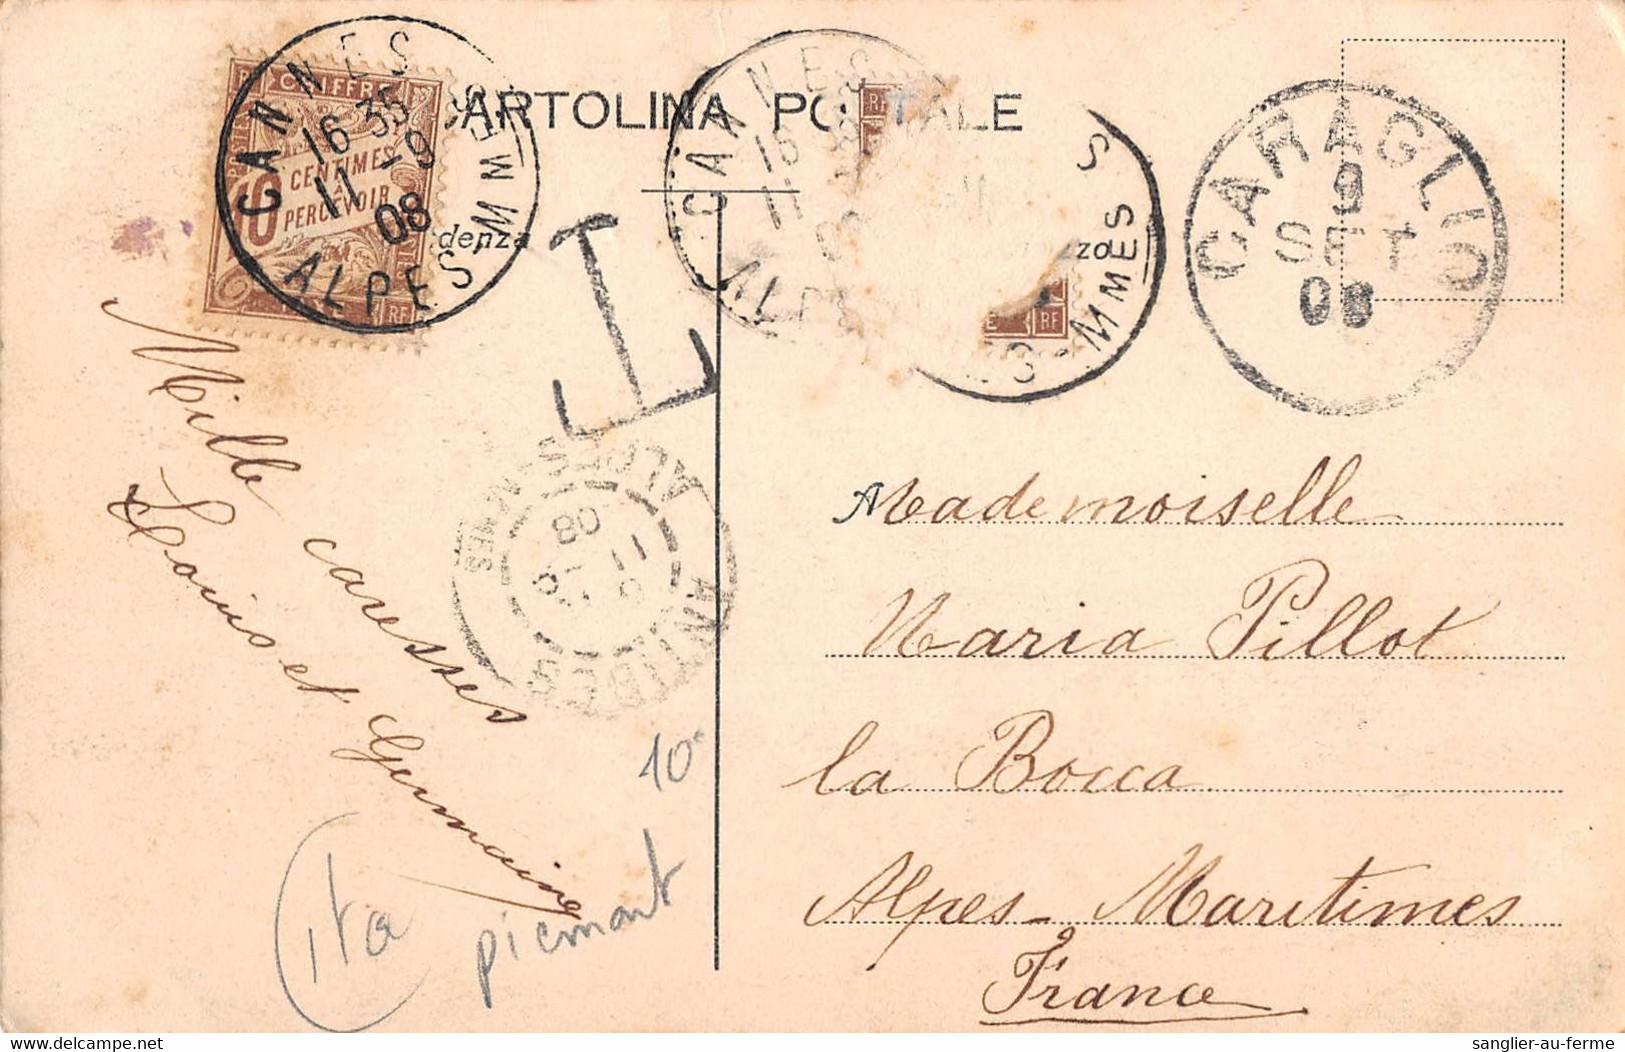 CARTOLINA PO TALE
CHIFFRE
10 CENTIMES
A
PERCEVOIR
RF
CANNES
16 35
11 -9
08
ALPES-MMES
denza
T
CANNES
16
11
ALPES
RF
zo
S-MMES
RF
CARAGLIO
9
SET
08
ANTIBES
11 -9
08
ALPES-MMES
Mille caresses
Louis et Germaine
Mademoiselle
Maria Pillot
la Bocca
Alpes-Maritimes
France
10
Ita
piemont
sanglier-au-ferme